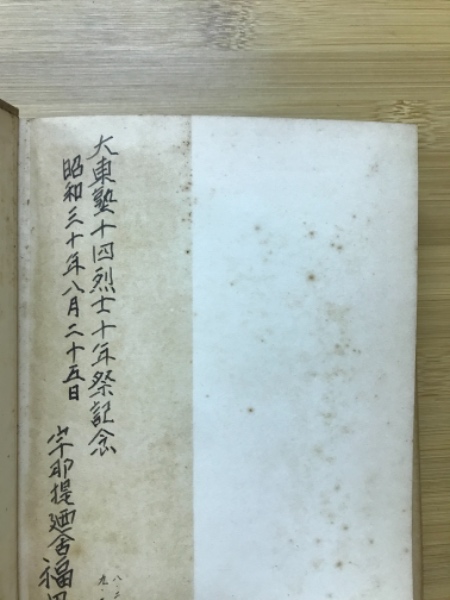 大東塾十四烈士十年祭記念
昭和三十年八月二十五日
宇耶提廼舎福
八二
九